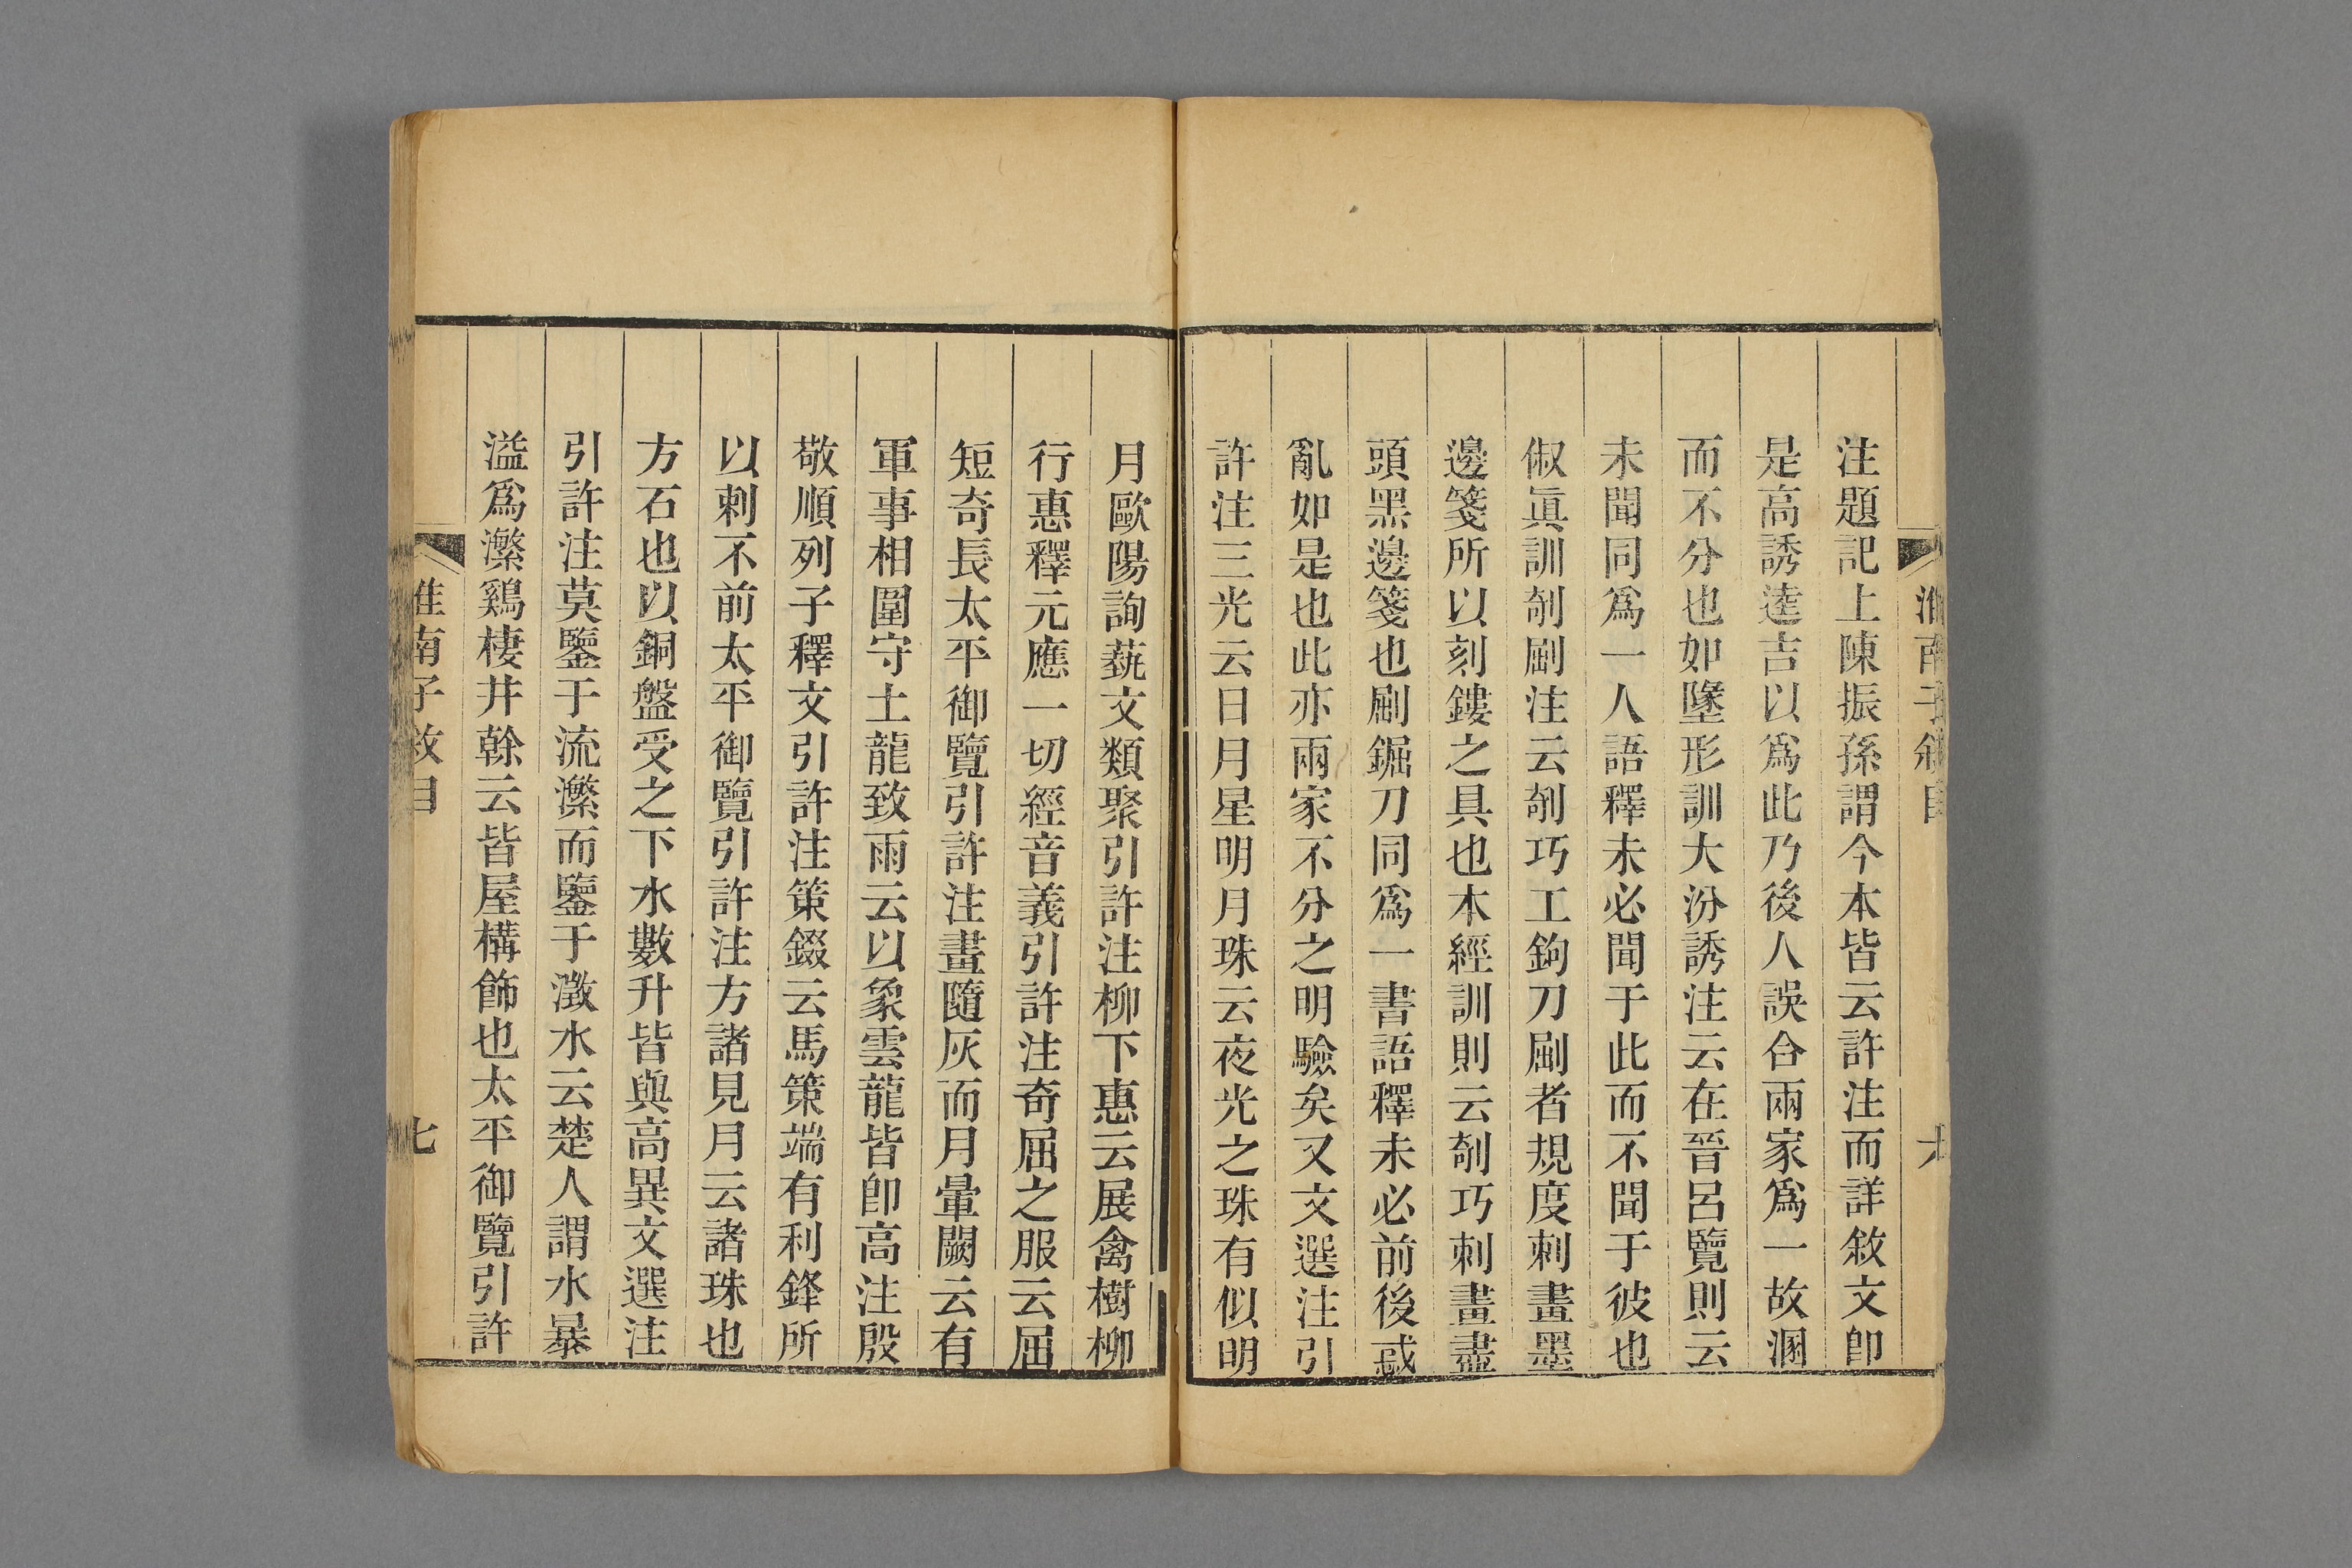 淮南子敘目
六
注題記上陳振孫謂今本皆云許注而詳敘文卽
是高誘逵吉以爲此乃後人誤合兩家爲一故溷
而不分也如墬形訓大汾誘注云在晉呂覽則云
未聞同爲一人語釋未必聞于此而不聞于彼也
俶眞訓剞劂注云剞巧工鉤刀劂者規度刺畫墨
邊箋所以刻鏤之具也本經訓則云剞巧刺畫盡
頭黑邊箋也劂鋸刀同爲一書語釋未必前後忒
亂如是也此亦兩家不分之明驗矣又文選注引
許注三光云日月星明月珠云夜光之珠有似明
月歐陽詢蓺文類聚引許注柳下惠云展禽樹柳
行惠釋元應一切經音義引許注奇屈之服云屈
短奇長太平御覽引許注畫隨灰而月暈闕云有
軍事相圍守土龍致雨云以象雲龍皆卽高注殷
敬順列子釋文引許注策錣云馬策端有利鋒所
以刺不前太平御覽引許注方諸見月云諸珠也
方石也以銅盤受之下水數升皆與高異文選注
引許注莫鑒于流瀿而鑒于澂水云楚人謂水暴
溢爲瀿鷄棲井榦云皆屋構飾也太平御覽引許
淮南子敘目
七